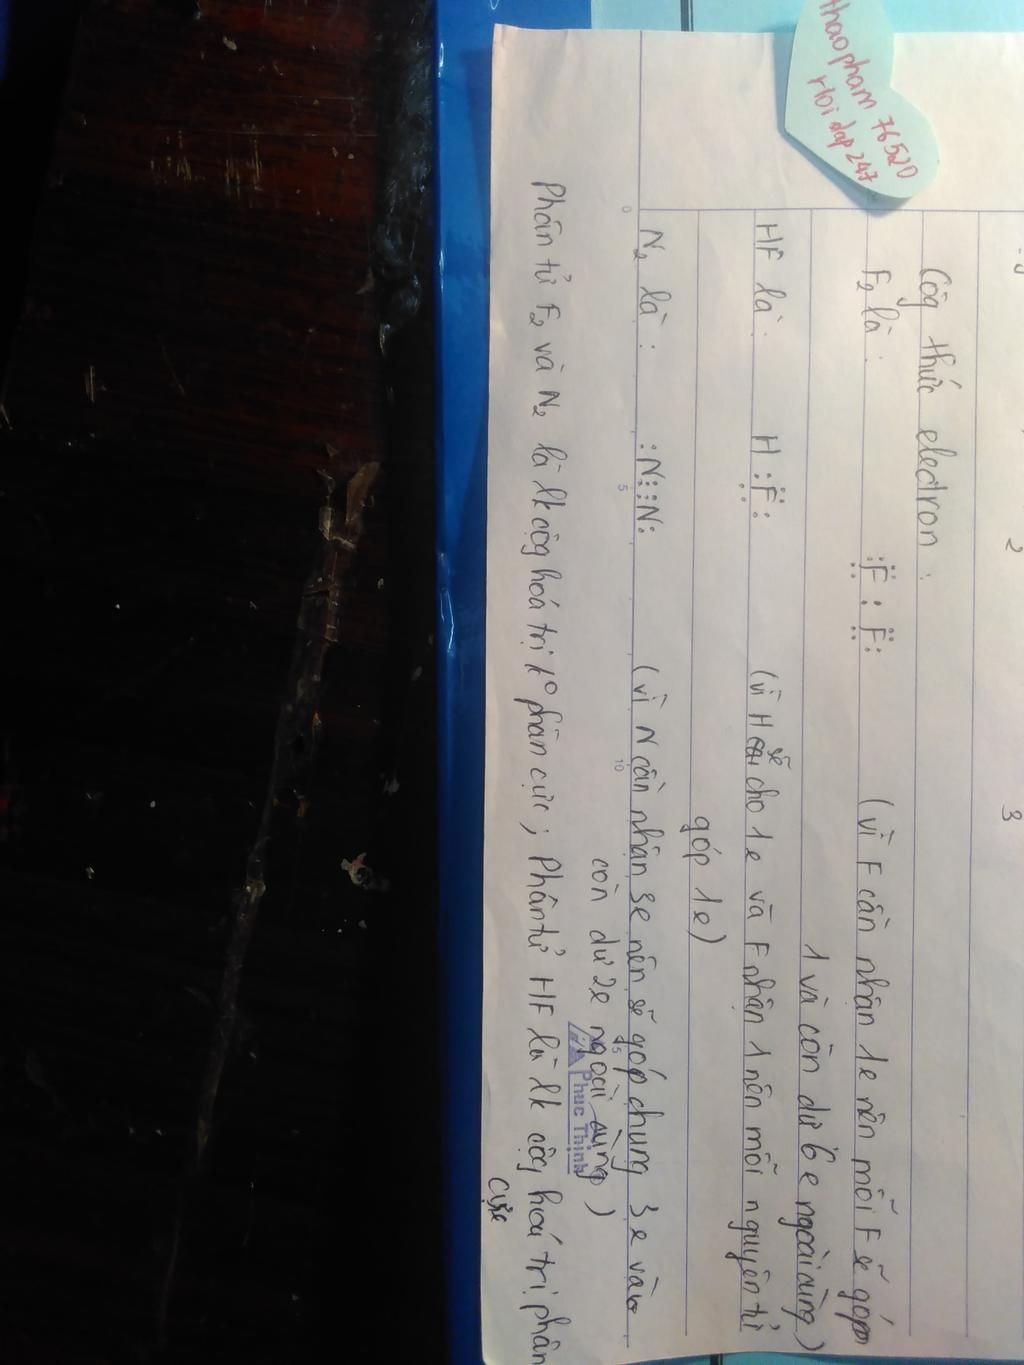 thaopham 76520
rhoi dap 247
2
3
Côg thức electron :
F2 là : :F̤̈ : F̤̈: (vì F cần nhận 1e nên mỗi F sẽ góp
1 và còn dư 6 e ngoài cùng)
HF là : H :F̤̈: (vì H sẽ cho 1e và F nhận 1 nên mỗi nguyên tử
góp 1e)
N2 là : :N⋮⋮N: (vì N cần nhận 3e nên sẽ góp chung 3 e vào
còn dư 2e ngoài cùng)
Phân tử F2 và N2 là lk côg hoá trị k⁰ phân cực ; Phân tử HF là lk côg hoá trị phân
cực
0
5
10
15
Phuc Thinh